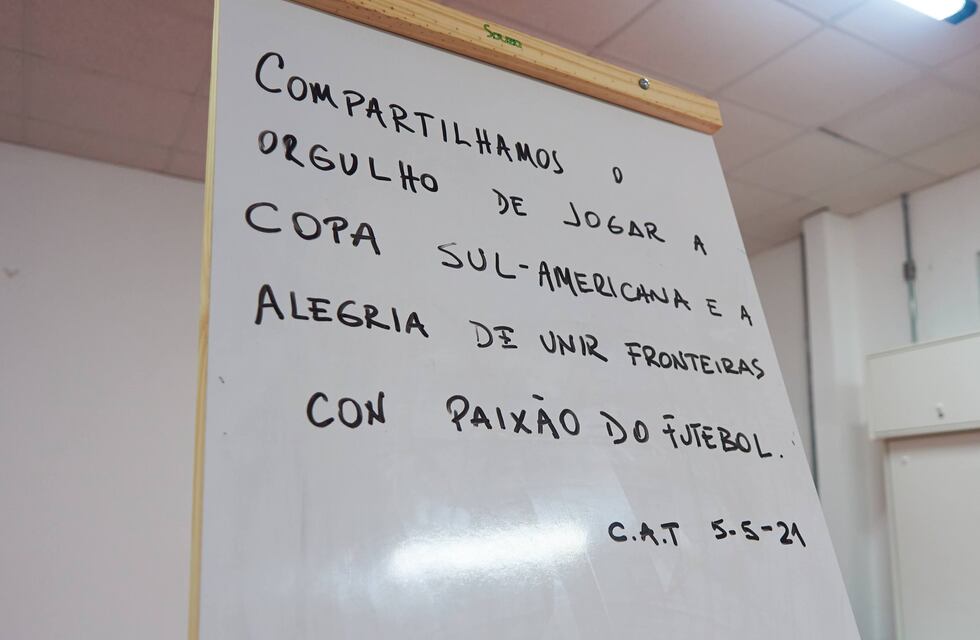 Souza
COMPARTILHAMOS O
ORGULHO DE JOGAR A
COPA SUL-AMERICANA E A
ALEGRIA DE UNIR FRONTEIRAS
CON PAIXÃO DO FUTEBOL.
C.A.T 5-5-21